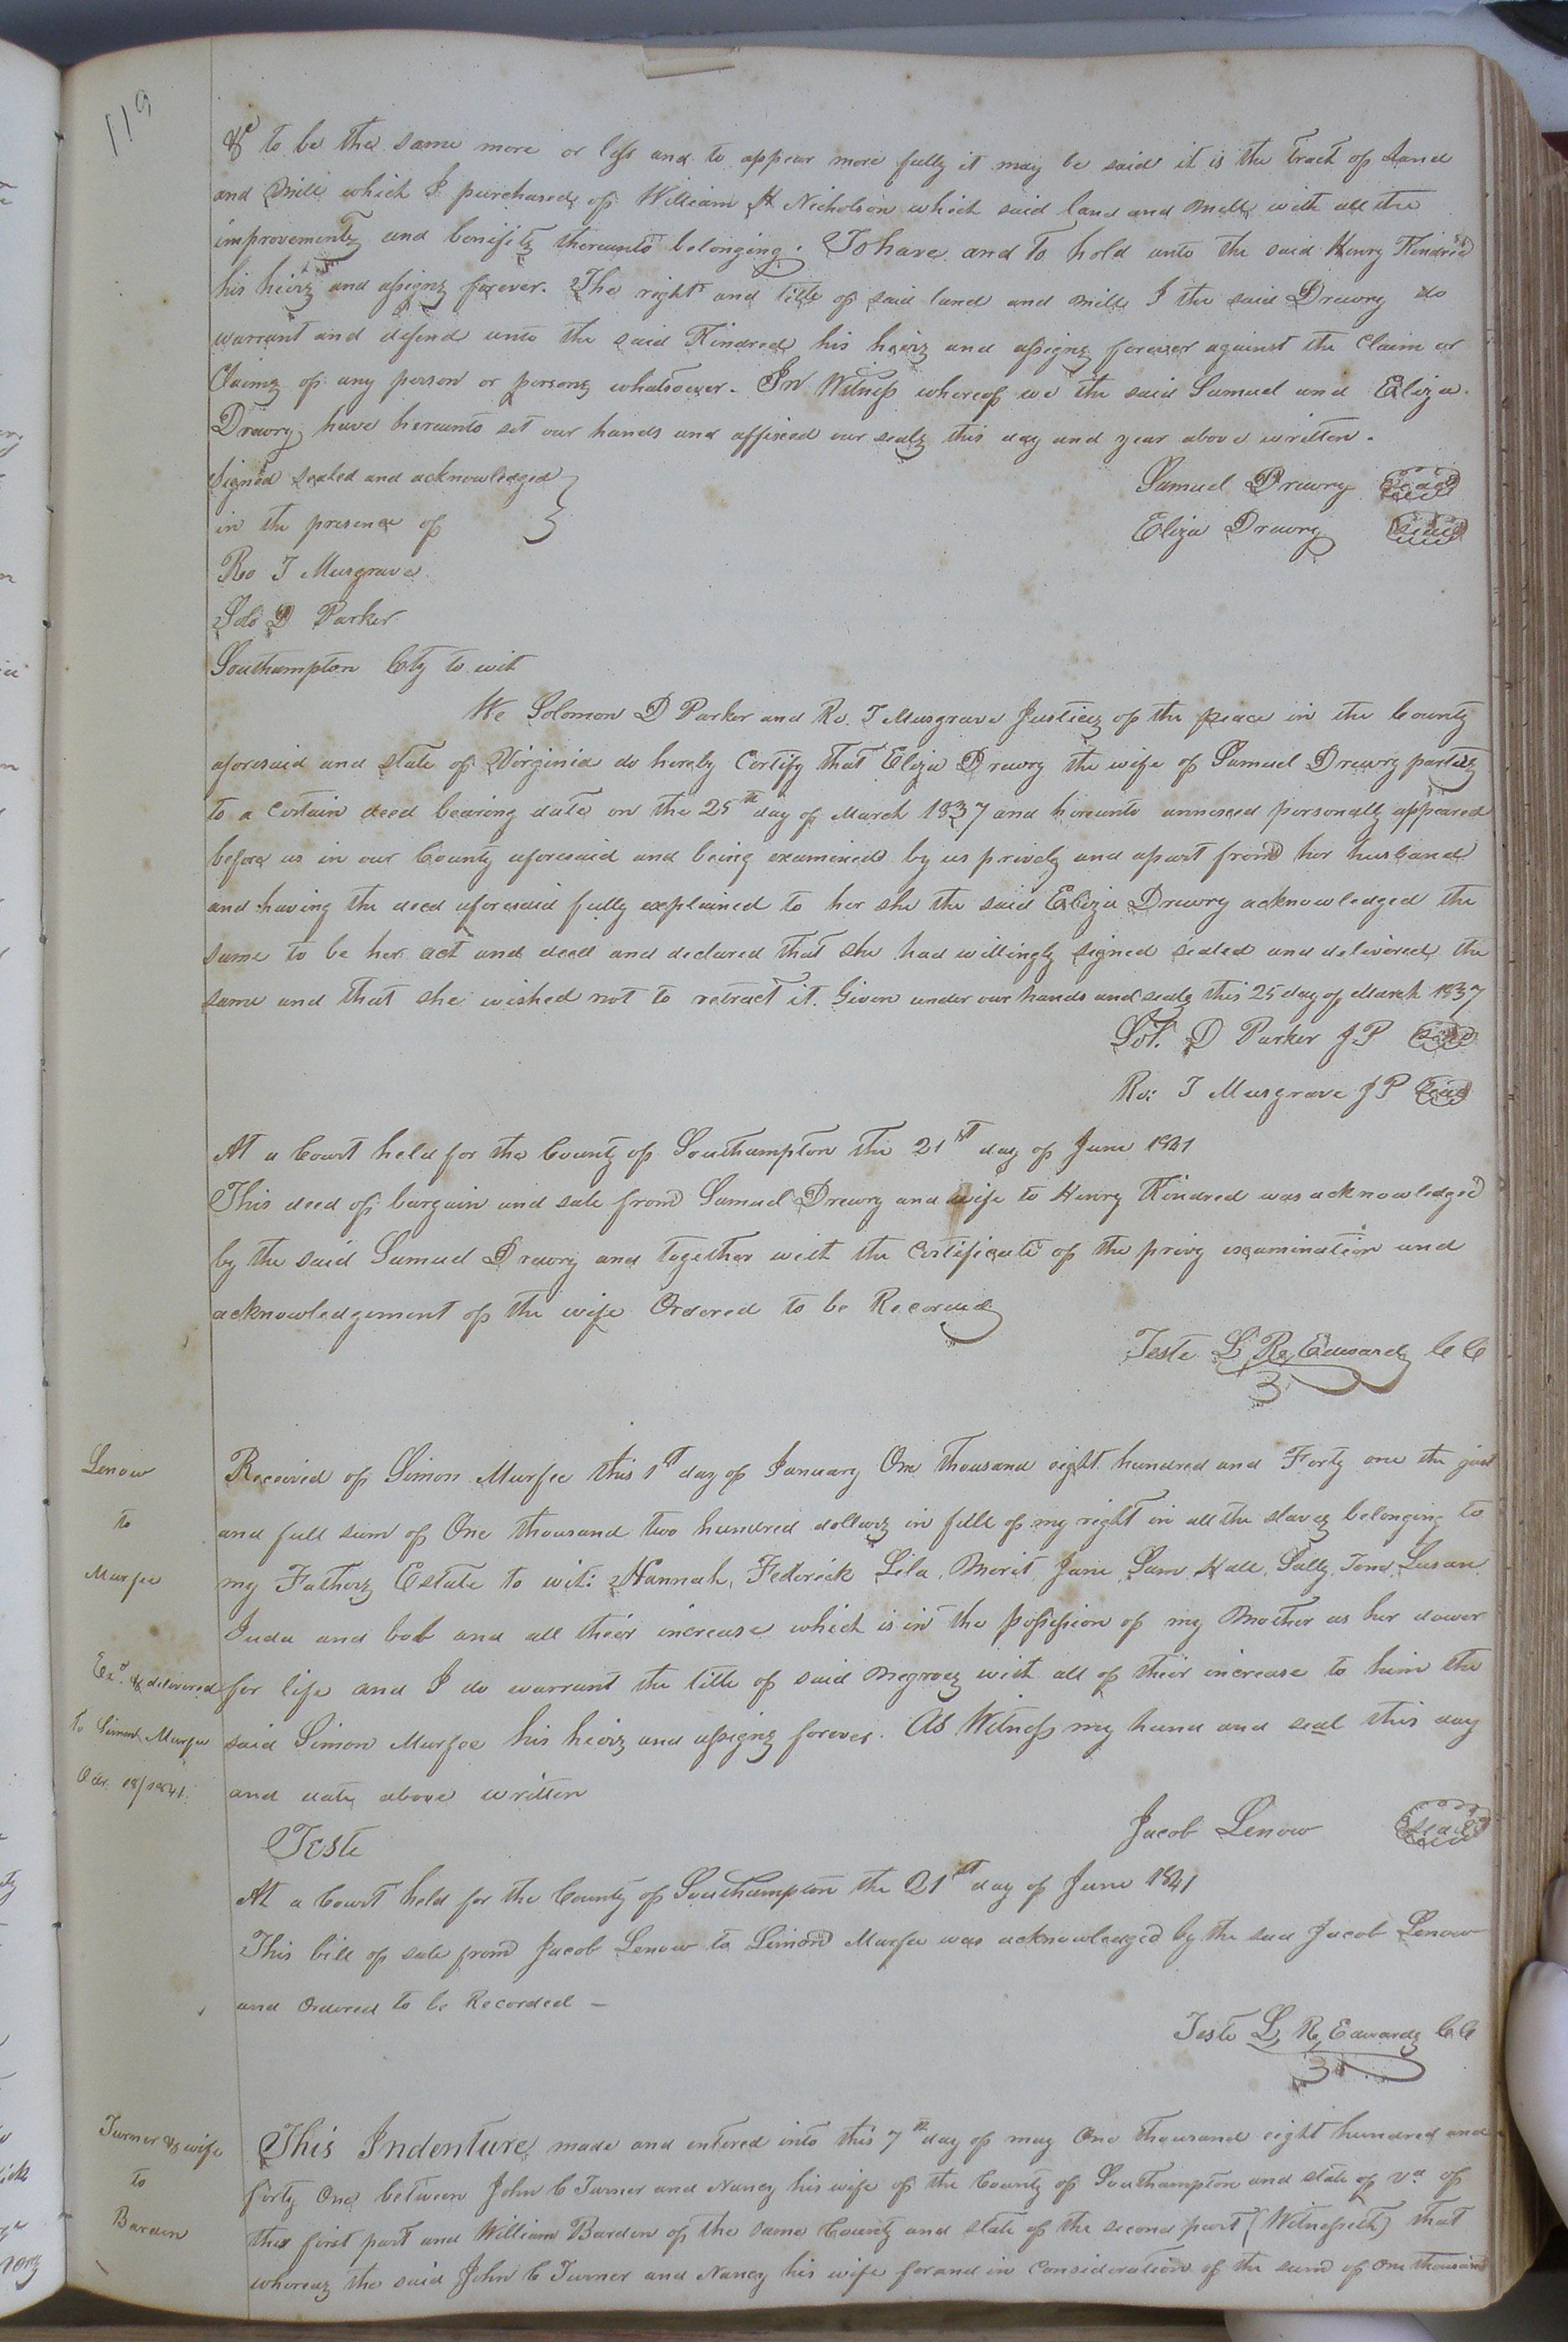 119
&c to be the same more or less and to appear more fully it may be said it is the tract of Land
and Mill which I purchased of William H Nicholson which said land and mill with all the
improvements and benifits thereunto belonging. To have and to hold unto the said Henry Kindred
his heirs and assigns forever. The right and title of said land and mill I the said Drewry do
warrant and defend unto the said Kindred his heirs and assigns forever against the Claim or
Claims of any person or persons whatsoever. In Witness whereof we the said Samuel and Eliza
Drewry have hereunto set our hands and affixed our seals this day and year above written.
Signed sealed and acknowledged
Samuel Drewry Seal
in the presence of
Eliza Drewry Seal
Ro T Musgrave
Solo D Parker
Southampton Cty to wit
We Solomon D Parker and Ro. T Musgrave Justices of the peace in the County
aforesaid and state of Virginia do hereby Certify that Eliza Drewry the wife of Samuel Drewry parties
to a certain deed bearing date on the 25th day of March 1837 and hereunto annexed personally appeared
before us in our County aforesaid and being examined by us privily and apart from her husband
and having the deed aforesaid fully explained to her she the said Eliza Drewry acknowledged the
same to be her act and deed and declared that she had willingly signed sealed and delivered the
same and that she wished not to retract it. Given under our hands and seals this 25 day of March 1837
Sol. D Parker JP Seal
Ro: T Musgrave JP Seal
At a Court held for the County of Southampton the 21st day of June 1841
This deed of bargain and sale from Samuel Drewry and wife to Henry Kindred was acknowledged
by the said Samuel Drewry and together with the Certificate of the privy examination and
acknowledgement of the wife Ordered to be Recorded
Teste L R Edwards CC
Lenow
to
Murfee
Exd. & delivered
to Simon Murfee
Octr. 18/1841.
Received of Simon Murfee this 1st day of January One thousand eight hundred and Forty one the just
and full sum of One thousand two hundred dollars in full of my right in all the slaves belonging to
my Fathers Estate to wit: Hannah, Federick Lila, Merit, Jane, Sam, Hall, Sally, Tom, Susan,
Juda and bob and all their increase which is in the possession of my Mother as her dower
for life and I do warrant the title of said Negroes with all of their increase to him the
said Simon Murfee his heirs and assigns forever. As Witness my hand and seal this day
and date above written
Jacob Lenow Seal
Teste
At a Court held for the County of Southampton the 21st day of June 1841
This bill of sale from Jacob Lenow to Simon Murfee was acknowledged by the said Jacob Lenow
and Ordered to be Recorded –
Teste L, R, Edwards C.C
Turner & wife
to
Barden
This Indenture made and entered into this 7th day of may One thousand eight hundred and
forty One between John C Turner and Nancy his wife of the County of Southampton and state of Va of
the first part and William Barden of the same County and state of the second part (Witnesseth) that
whereas the said John C Turner and Nancy his wife for and in Consideration of the sum of One thousand